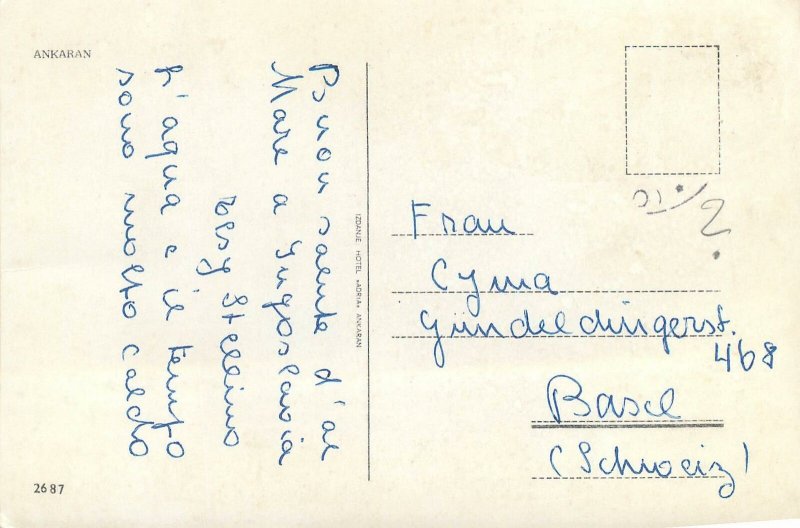 ANKARAN
Buon saente d'al
Mare a Jugoslavia
Stellino
L'aqua e il tempo
sono molto caldo
IZDANJE HOTEL »ADRIA« ANKARAN
Frau
Cyma
Gündeldingerst.
468
Basel
(Schweiz)
2687